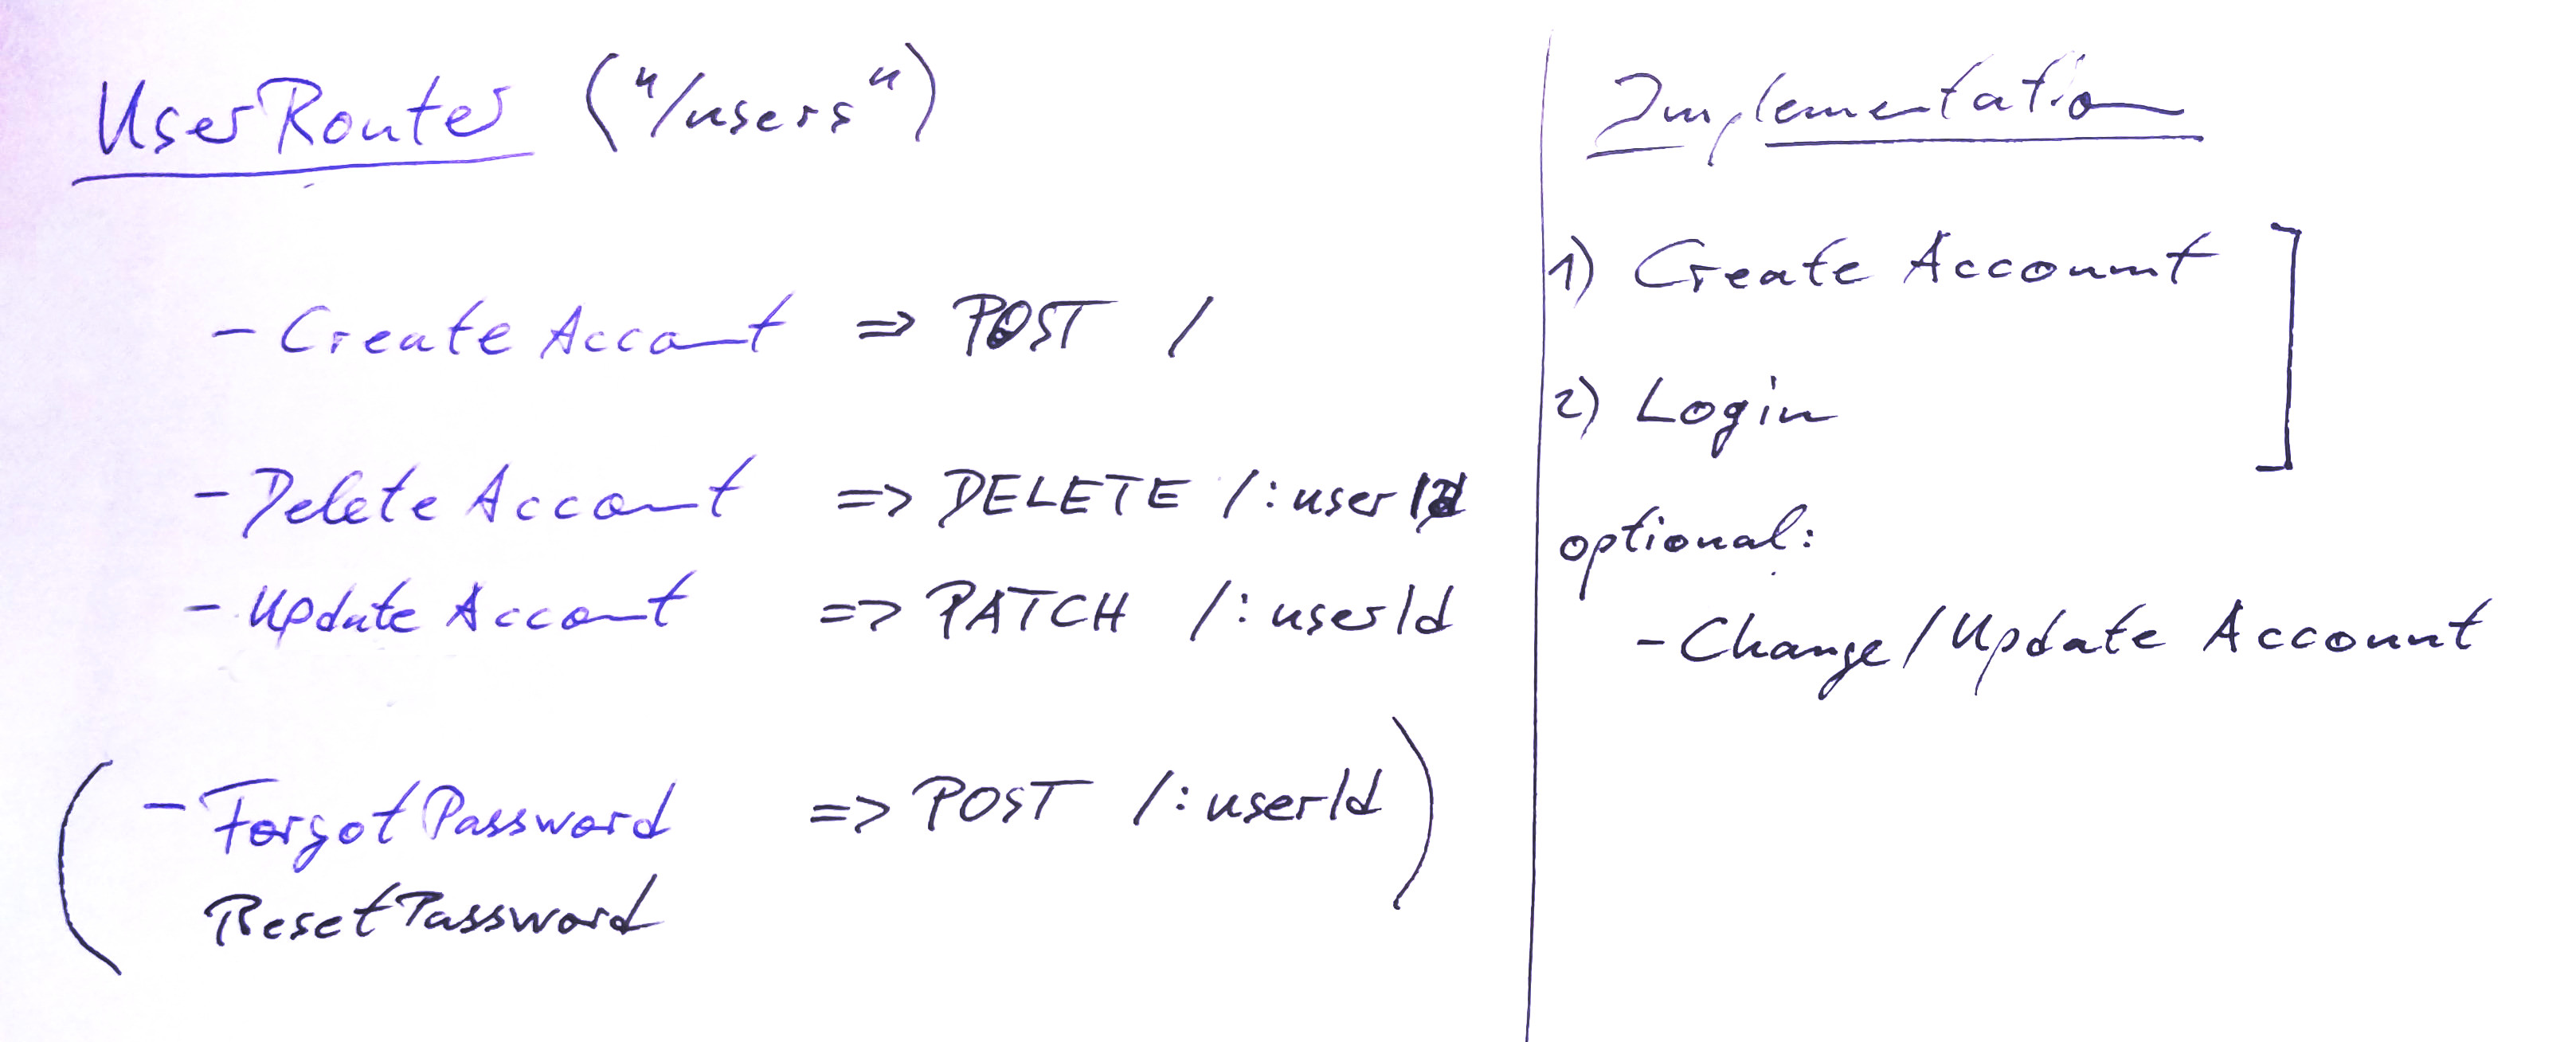 UserRouter ("/users")
- Create Account => POST /
- Delete Account => DELETE /:userId
- Update Account => PATCH /:userId
( - Forgot Password => POST /:userId )
Reset Password
Implementation
1) Create Account ]
2) Login
optional:
- Change/Update Account